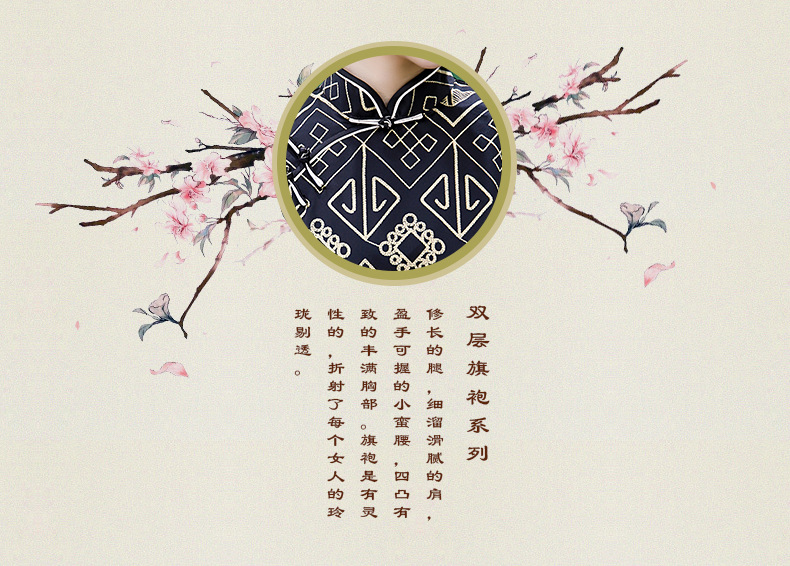 双层旗袍系列
修长的腿，细溜滑腻的肩，
盈手可握的小蛮腰，四凸有
致的丰满胸部。旗袍是有灵
性的，折射了每个女人的玲
珑剔透。